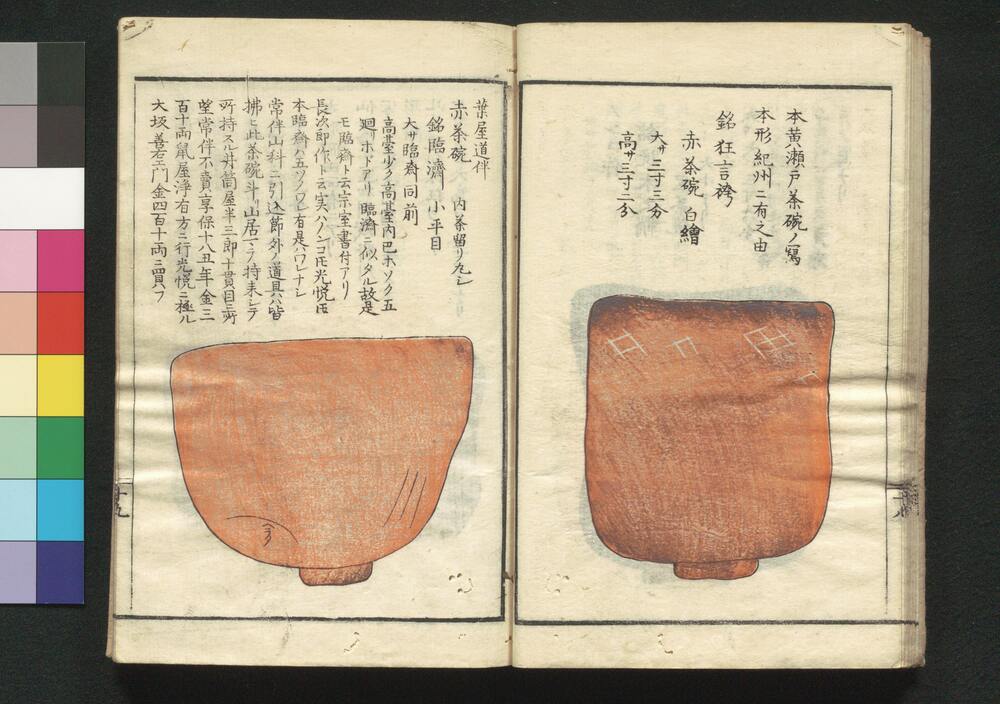 本黄瀬戸茶碗ノ寫
本形紀州ニ有之由
銘狂言袴
赤茶碗 白繪
大サ三寸三分
高サ三寸二分
十八
葉屋道伴
赤茶碗 内茶留リ丸シ
銘臨濟 小平目
大サ臨齋同前
高臺少ク高臺内巴ホソク五
廻リホドアリ臨濟ニ似タル故是
モ臨齋ト云宗室書付アリ
長次郎作ト云実ハノンコ圧光悦圧
本臨齋ハ五ツノワレ有是ハワレナシ
常伴山科ニ引込節外ノ道具ハ皆
拂ヒ此茶碗斗リ山居
所持スル井筒屋半三郎十貫目ニ所
望常伴不賣享保十八丑年金三
百十両鼠屋浄有方ニ行光悦ニ極ル
大坂善左エ門金四百十両ニ買フ
十九